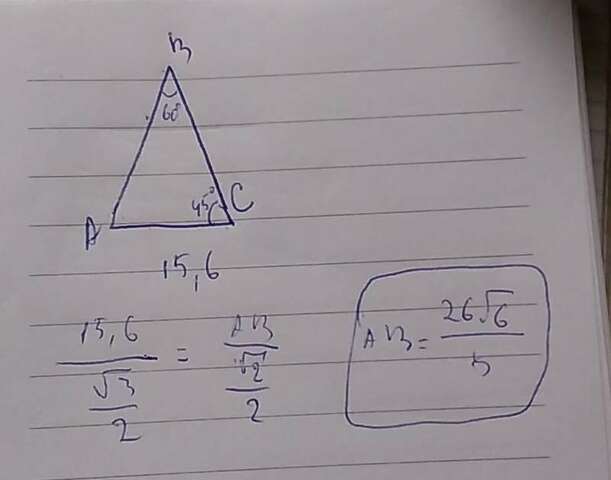 B
60°
45°
C
A
15,6
15,6 / (√3 / 2) = AB / (√2 / 2)
AB = 26√6 / 5